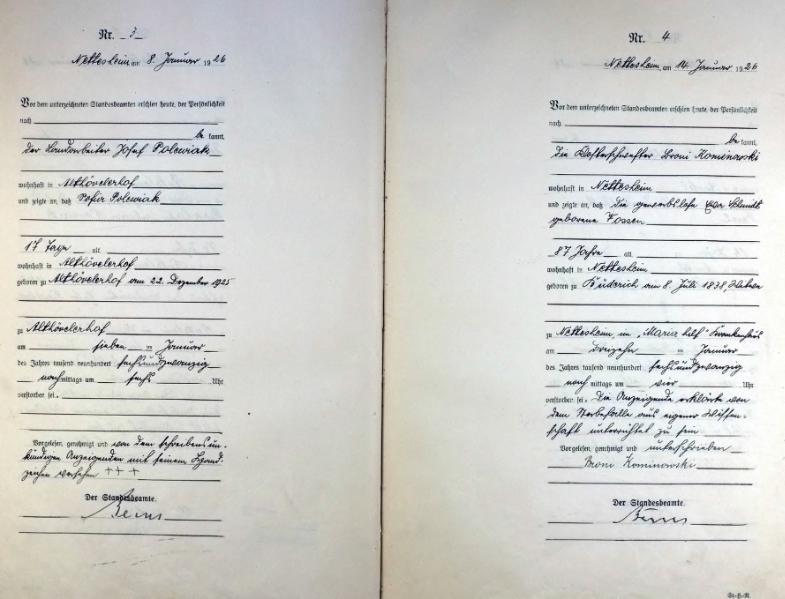 Nr. 3
Nettesheim am 8. Januar 1926
Vor dem unterzeichneten Standesbeamten erschien heute, der Persönlichkeit
nach
be kannt,
der Landarbeiter Josef Polewiak
wohnhaft in Althövelerhof
und zeigte an, daß Sofie Polewiak
17 Tage alt
wohnhaft in Althövelerhof
geboren zu Althövelerhof am 22. Dezember 1925
zu Althövelerhof
am sieben ten Januar
des Jahres tausend neunhundert sechsundzwanzig
nachmittags um sechs Uhr
verstorben sei.
Vorgelesen, genehmigt und von dem schreibensun-
kundigen Anzeigenden mit seinem Hand-
zeichen versehen +++
Der Standesbeamte.
Nr. 4
Nettesheim, am 14. Januar 1926
Vor dem unterzeichneten Standesbeamten erschien heute, der Persönlichkeit
nach
be kannt,
die Klosterschwester Broni Kominowski
wohnhaft in Nettesheim
und zeigte an, daß die gewerbslose Eva Schmidt
geborene Fossen
87 Jahre alt,
wohnhaft in Nettesheim
geboren zu Büderich am 8. Juli 1838, Witwe
zu Nettesheim, im "Maria hilf" Krankenhaus
am dreizehn ten Januar
des Jahres tausend neunhundert sechsundzwanzig
nach mittags um vier Uhr
verstorben sei. Die Anzeigende erklärte von
dem Sterbefalle aus eigener Wissen-
schaft unterrichtet zu sein
Vorgelesen, genehmigt und unterschrieben
Broni Kominowski
Der Standesbeamte.